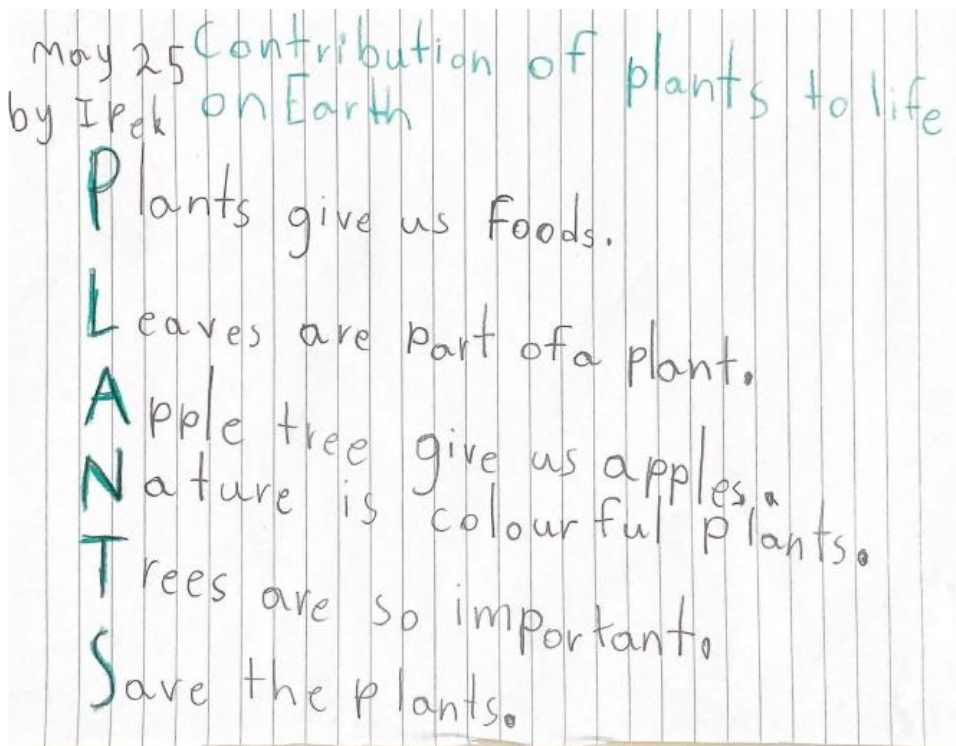 May 25 Contribution of plants to life
by Ipek on Earth
Plants give us foods.
Leaves are part of a plant.
Apple tree give us apples.
Nature is colourful plants.
Trees are so important.
Save the plants.